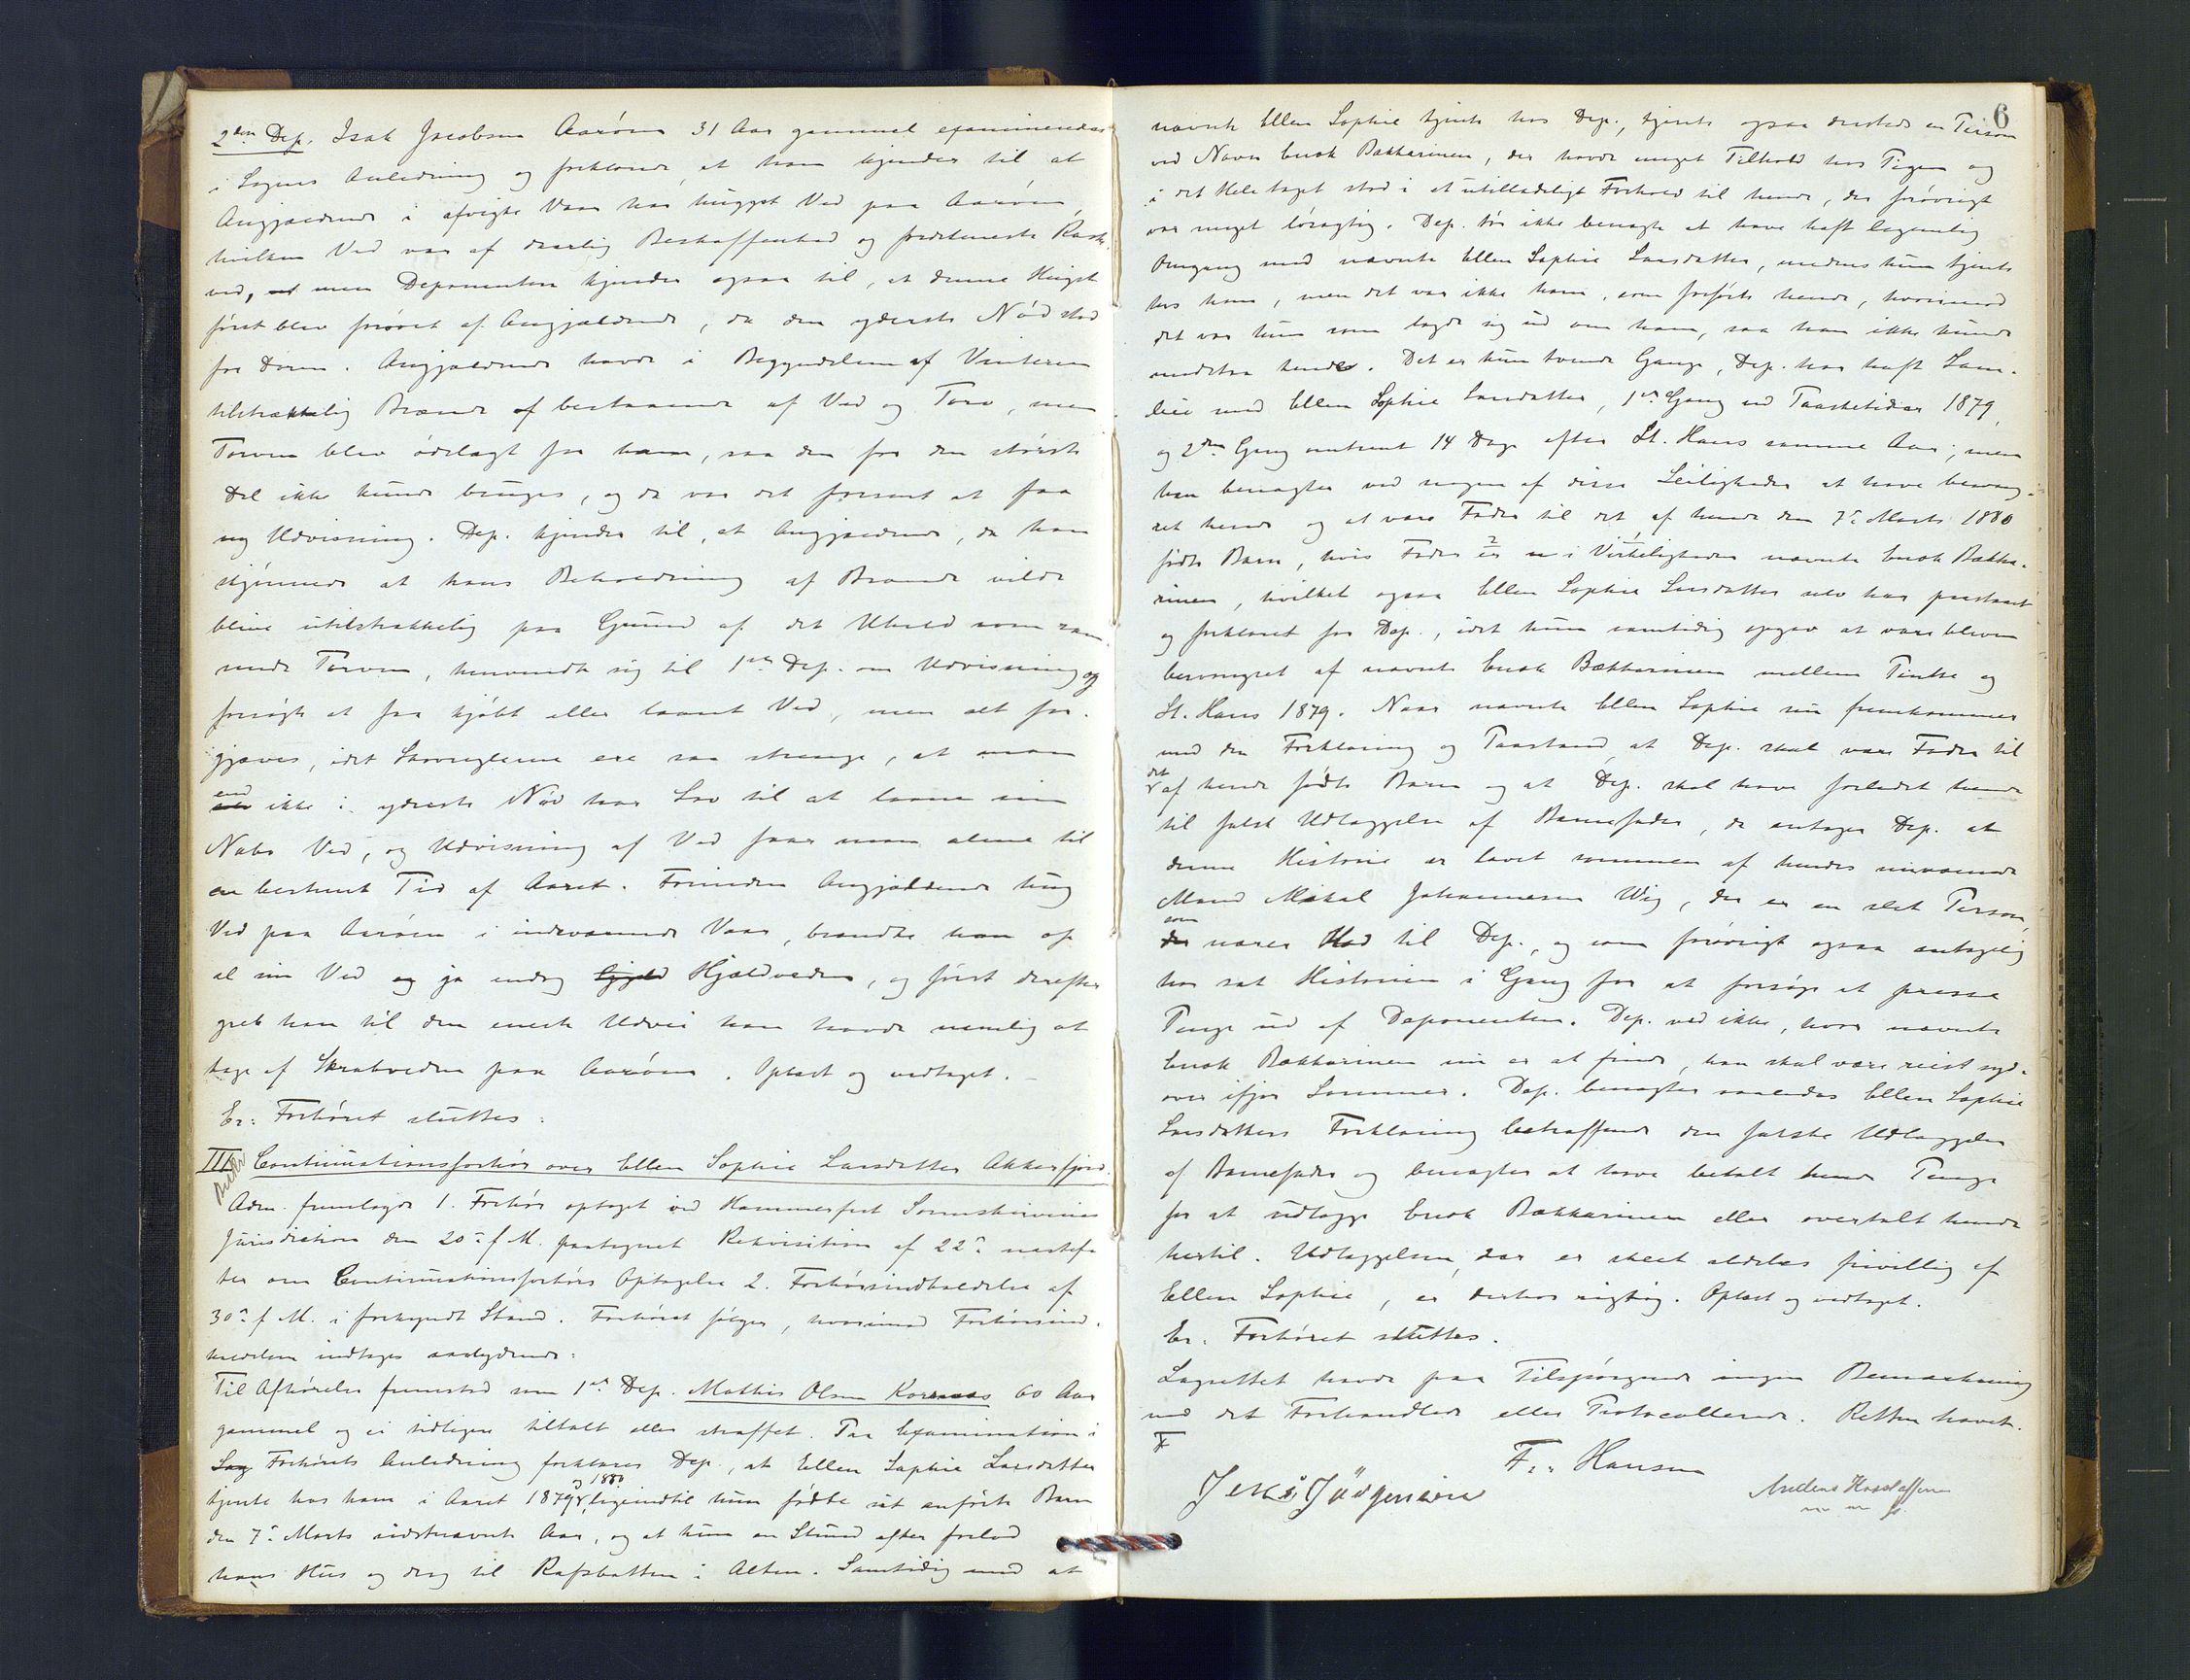 2den Dep. Isak Jacobsen Aarøen 31 Aar gammel examineredes
i Sagens Anledning og forklarede, at han kjender til at
Angjældende i afvigte Vaar har hugget Ved paa Aarøen,
hvilken Ved var af daarlig Beskaffenhed og
ved, men Deponenten kjender ogsaa til, at denne Hugst
først blev prøvet af Angjældende, da den yderste Nød stod
for Døren. Angjældende havde i Begyndelsen af Vinteren
tilstrækkelig Brænde bestaaende af Ved og Torv, men
Torven blev ødelagt for ham, saa den for den største
Del ikke kunde bruges, og da var det forsent at faa
ny Udvisning. Dep. kjender til, at Angjældende, da han
skjønnede at hans Beholdning af Brænde vilde
blive utilstrækkelig paa Grund af det Uheld som ram
mede Torven, henvendte sig til 1ste Dep. om Udvisning og
forsøgte at faa kjøbt eller laant Ved, men alt for-
gjæves, idet Skovreglerne ere saa strenge, at man
end ikke i yderste Nød har Lov til at laane sin
Nabo Ved, og Udvisning af Ved faar man alene til
en bestemt Tid af Aaret. Forinden Angjældende hug
Ved paa Aarøen i indeværende Vaar, brændte han op
al sin Ved og ja endog Hjældveden, og først derefter
greb han til den eneste Udvei han havde nemlig at
tage af Skrabveden paa Aarøen. Oplæst og vedtaget.
Er: Forhøret sluttes:
III Continuationsforhør over Ellen Sophie Larsdatter Akkarfjord.
Adm. fremlagde 1. Forhør optaget ved Hammerfest Sorenskriveries
Jurisdiction den 20de f. M. paategnet Rekvisition af 22de næstef-
ter om Continuationsforhørs Optagelse 2. Forhørsindkaldelse af
30de f. M. i forkyndt Stand. Forhøret følger, hvorimod Forhørsind-
kaldelsen indtages saalydende:
Til Afhørelse fremstod som 1ste Dep. Mathis Olsen Korsnes 60 Aar
gammel og ei tidligere tiltalt eller straffet. Paa Examination i
Forhørets Anledning forklarer Dep., at Ellen Sophie Larsdatter
tjente hos ham i Aaret 1879 og 1880, ligeindtil hun fødte sit anførte Barn
den 7de Marts sidstnævnte Aar, og at hun en Stund efter forlod
hans Hus og drog til Rafsbotten i Alten. Samtidig med at
6
nævnte Ellen Sophie tjente hos Dep., tjente ogsaa dersteds en Person
ved Navn Enok Bækkarinen, der havde meget Tilhold hos Pigen og
i det Hele taget stod i et utilladeligt Forhold til hende, der forøvrigt
var meget løsagtig. Dep. tør ikke benægte at have haft legemlig
Omgang med nævnte Ellen Sophie Larsdatter, medens hun tjente
hos ham, men det var ikke ham, som forførte hende, hvorimod
det var hun som lagde sig ud om ham, saa han ikke kunde
modstaa hende. Det er kun tvende Gange, Dep. har haft Sam-
leie med Ellen Sophie Larsdatter, 1ste Gang ved Paasketider 1879,
og 2den Gang omtrent 14 Dage efter St. Hans samme Aar; men
han benægter ved nogen af disse Leiligheder at have besvang-
ret hende og at være Fader til det af hende den 7de Marts 1880
fødte Barn, hvis Fader er i Virkeligheden nævnte Enok Bækka-
rinen, hvilket ogsaa Ellen Sophie Larsdatter selv har paastaaet
og forklaret for Dep., idet hun samtidig opgav at være bleven
besvangret af nævnte Enok Bækkarinen mellem Pintse og
St. Hans 1879. Naar nævnte Ellen Sophie nu fremkommer
med den Forklaring og Paastand, at Dep. skal være Fader til
det af hende fødte Barn og at Dep. skal have forledet hende
til falsk Udlæggelse af Barnefader, da antager Dep. at
denne Historie er lavet sammen af hendes nuværende
Mand Mikal Johannesen Wig, der er en slet Person,
som nærer Had til Dep., og som forøvrigt ogsaa antagelig
har sat Historien i Gang for at forsøge at presse
Penge ud af Deponenten. Dep. ved ikke, hvor nævnte
Enok Bækkarinen nu er at finde, han skal være reist syd-
over ifjor Sommer. Dep. benægter saaledes Ellen Sophie
Larsdatters Forklaring betræffende den falske Udlæggelse
af Barnefader og benægter at have betalt hende Penge
for at udlægge Enok Bækkarinen eller overtalt hende
hertil. Udlæggelsen, der er skeet aldeles frivillig af
Ellen Sophie, er derhos rigtig. Oplæst og vedtaget.
Er. Forhøret sluttes.
Lagrettet havde paa Tilspørgende ingen Bemærkning
ved det Forhandlede eller Protocollerede. Retten hævet.
Fr. Hansen
Jens Jørgensen